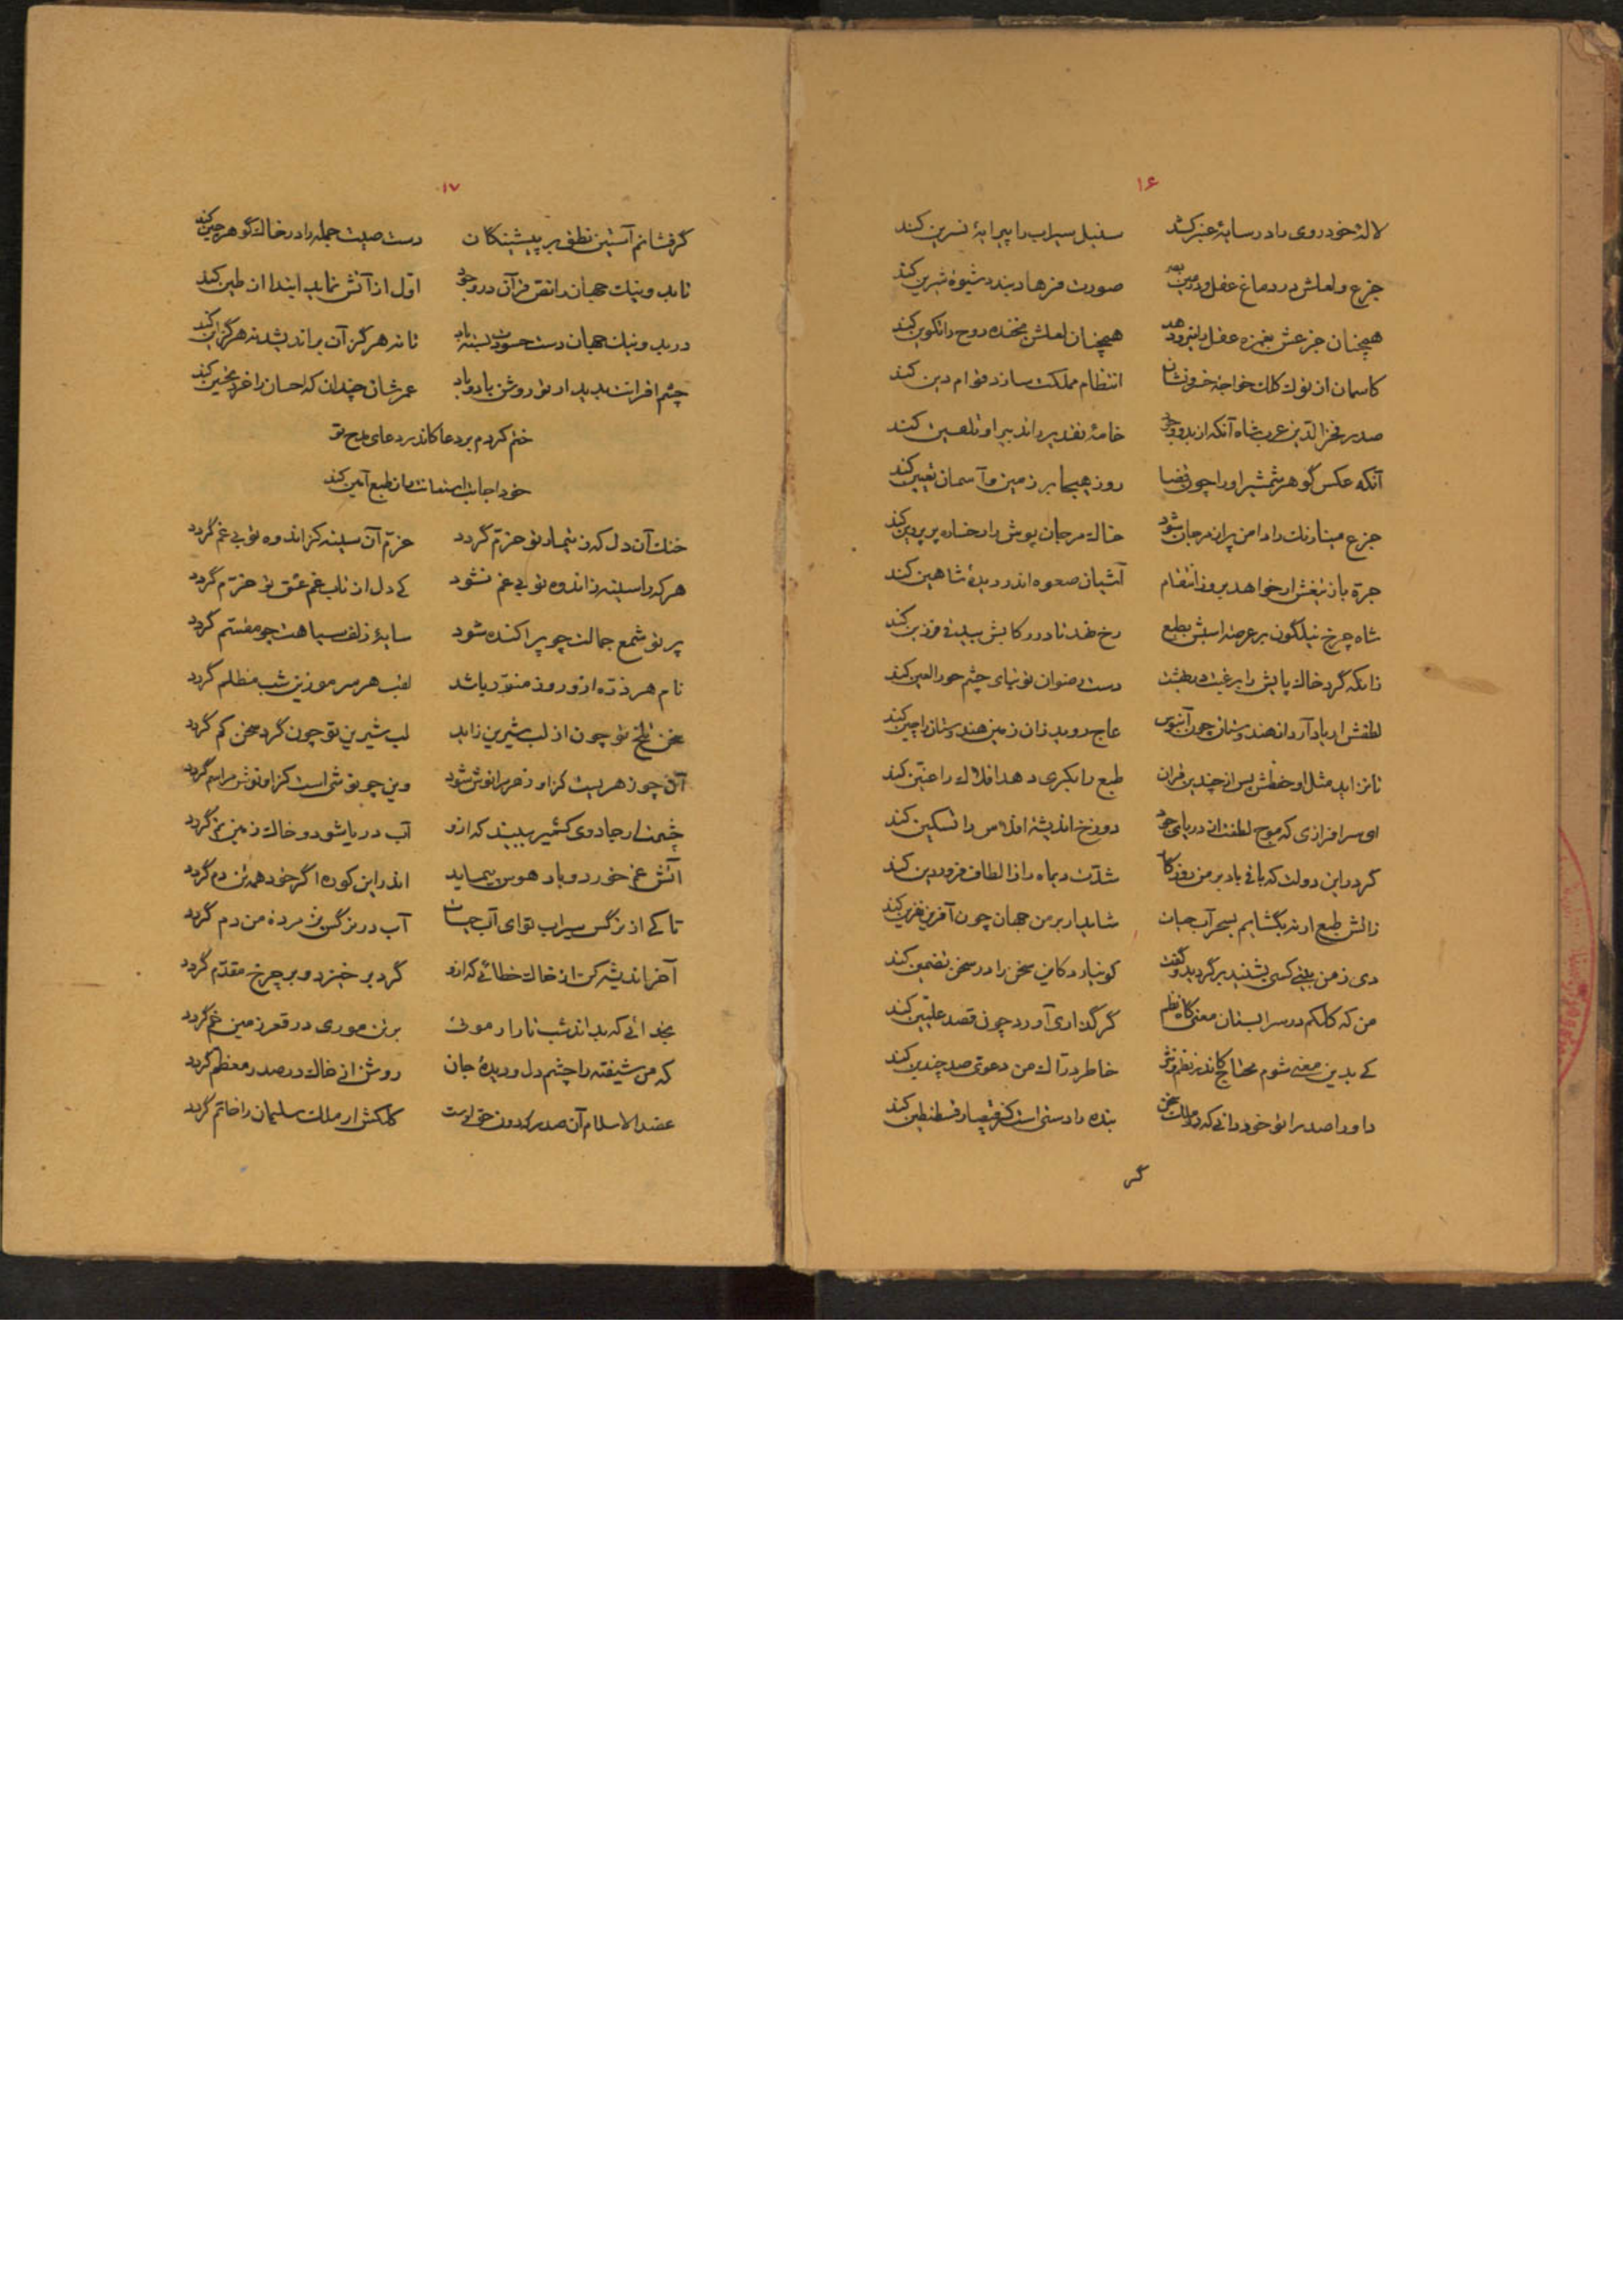 ۱۶
لالهٔ خودروی را در سایهٔ عنبر کشد سنبل سیراب را پیرایهٔ نسرین کند
جزع و لعلش در دماغ عقل و در عین بصر صورت فرهاد بندد شیوهٔ شیرین کند
همچنان جزعش بغمزه عقل را همچنان لعلش بخنده روح را تکوین کند
کاسمان از نوک کلک خواجهٔ خسرونشان انتظام مملکت سازد قوام دین کند
صدر فخرالدین عرب شاه آنکه از بدو وجود خامهٔ تقدیر را تدبیر او تلقین کند
آنکه عکس گوهر شمشیر او را چون قضا روز هیجا بر زمین و آسمان تعیین کند
جزع مینا رنگ را دامن پر از مرجان شود خاک مرجان پوش را رخساره پر پروین کند
جرهٔ باز تیغش ار خواهد بروز انتقام آشیان صعوه اندر دیدهٔ شاهین کند
شاه چرخ نیلگون بر عرصهٔ اسبش بطبع رخ نهد تا در رکابش بیدقی فرزین کند
زانکه گرد خاک پایش را برغبت در بهشت دست رضوان توتیای چشم حورالعین کند
لطفش ار یاد آرد از هندوستان چون آبنوس عاج روید زان زمین هندوستان را چین کند
تا نزاید مثل او خطش پس از چندین قران طبع را بکری دهد افلاک را عنین کند
ای سرافرازی که موج لطفت از دریای جود دوزخ اندیشهٔ افلاس را تسکین کند
گر در این دولت که باقی باد بر من روزگار شدت دیماه را ز الطاف فروردین کند
زآتش طبع ار نه بگشایم بسحر آب حیات شاید ار بر من جهان چون آفرین نفرین کند
دی ز من بیتی کسی بشنید برگردید و گفت کو نیارد کاین سخن را در سخن تضمین کند
من که کلکم در سرابستان معنی گاه نظم گر گذاری آورد چون قصد علیین کند
کی بدین معنی شوم محتاج کاندر نظم و نثر خاطر دراک من دعوی صد چندین کند
داورا صدرا تو خود دانی که در ملک سخن بنده را دستی است کز قیصار قسطنطین کند
گر
۱۷
گر فشانم آستین نطق بر پیشینگان دست صیت جمله را در خاک گوهرچین کند
تا بد و نیک جهان را نقش قرآن در وجود اول از آتش نماید ابتدا از طین کند
در بد و نیک جهان دست حسودت بسته باد تا نه هرگز آن براندیشد نه هرگز این کند
چشم اقرانت بدیدار تو روشن باد و باد عمرشان چندان که احسان را خرد تحسین کند
ختم کردم بر دعا کاندر دعای مدح تو
خود اجابت استعانت زان طبع آمین کند
خنک آن دل که ز تیمار تو خرم گردد خرم آن سینه کز اندوه تو بی غم گردد
هر که را سینه ز اندوه تو بی غم نشود کی دل از تاب غم عشق تو خرم گردد
پرتو شمع جمالت چو پراکنده شود سایهٔ زلف سیاهت چو مقسم گردد
نام هر ذره از او روز منور باشد لقب هر سر مو زین شب مظلم گردد
سخن تلخ تو چون از لب شیرین زاید لب شیرین تو چون گرد سخن کم گردد
آن چو زهریست کز او زهر مرا نوش شود وین چو نوشی است کز او نوش مرا سم گردد
چشمت ار جادوی کشمیر ببیند که از او آب دریا شود و خاک زمین نم گردد
آتش غم خورد و باد هوس پیماید اندر این کوره اگر خود همه تن دم گردد
تا کی از نرگس سیراب تو ای آب حیات آب در نرگس پژمرده من دم گردد
آخر اندیشه کن از خاک خطائی که از او گرد برخیزد و بر چرخ مقدم گردد
بخدائی که بداند شب تار ار موئی بر تن موری در قعر زمین خم گردد
که من شیفته را چشم دل و دیدهٔ جان روشن از خاک در صدر معظم گردد
عضدالاسلام آن صدر که دون حق اوست کلکش ار ملک سلیمان را خاتم گردد